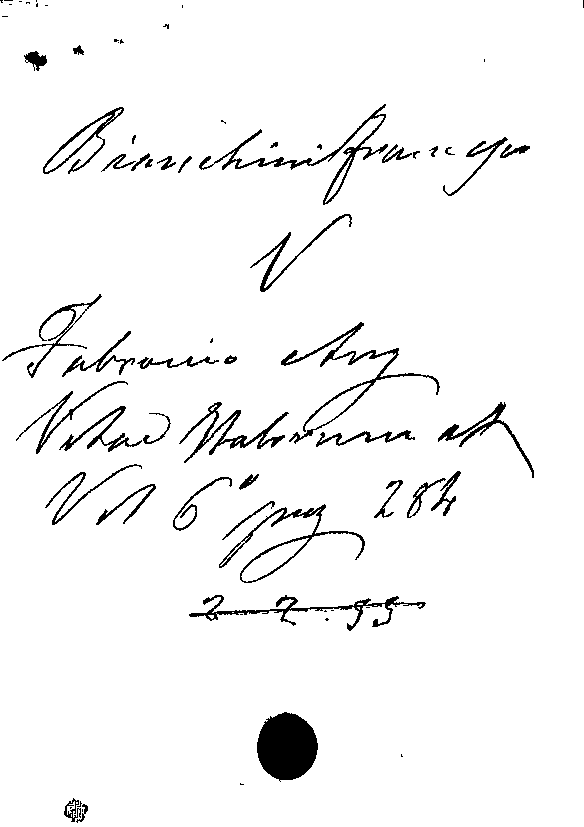 Bianchini Franc
V
Fabronio Ang
Vitae Italorum etc
Vol 6° pag 284
2 2. 99